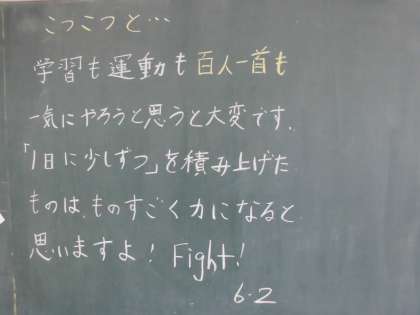 こつこつと…
学習も運動も百人一首も
一気にやろうと思うと大変です。
「1日に少しずつ」を積み上げた
ものは、ものすごく力になると
思いますよ！Fight！
6-2